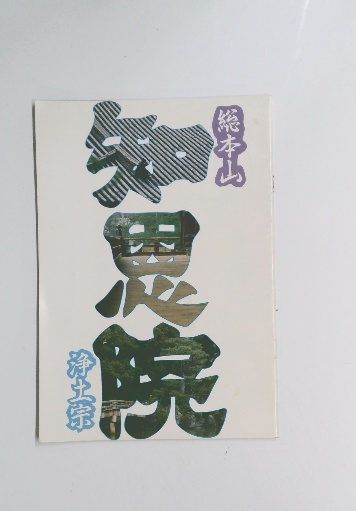 総本山
知恩院
浄土宗